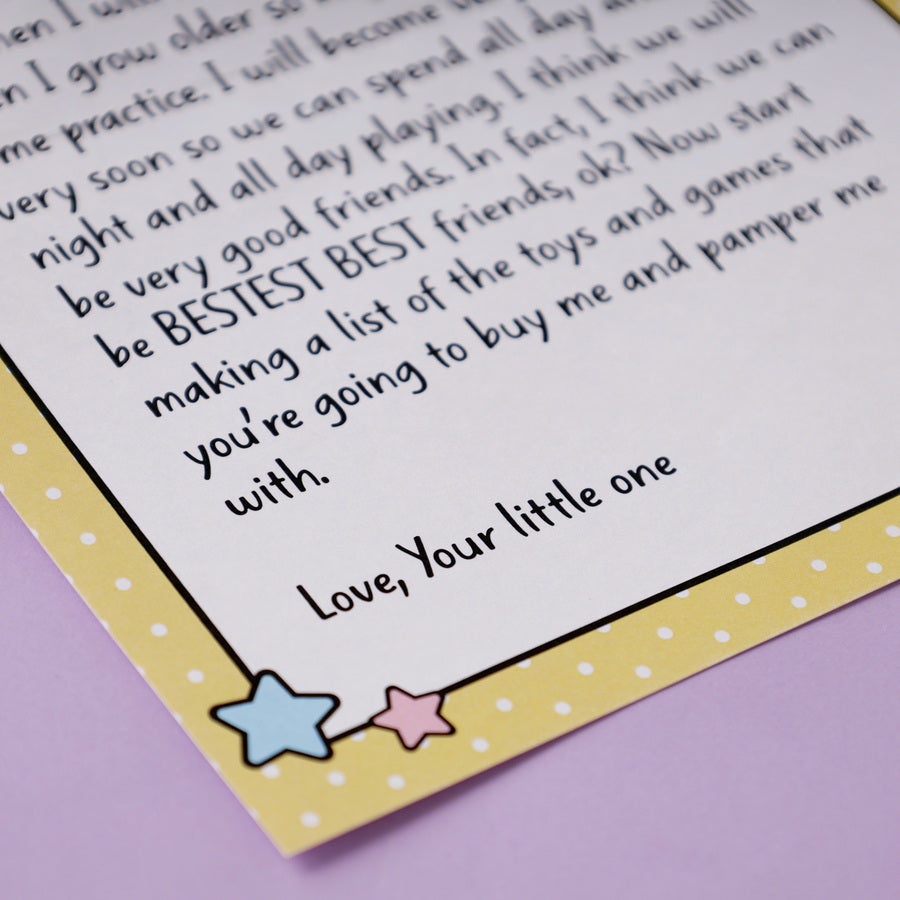 I will
I grow older so
me practice. I will become
very soon so we can spend all day
night and all day playing. I think we will
be very good friends. In fact, I think we can
be BESTEST BEST friends, ok? Now start
making a list of the toys and games that
you're going to buy me and pamper me
with.
Love, Your little one